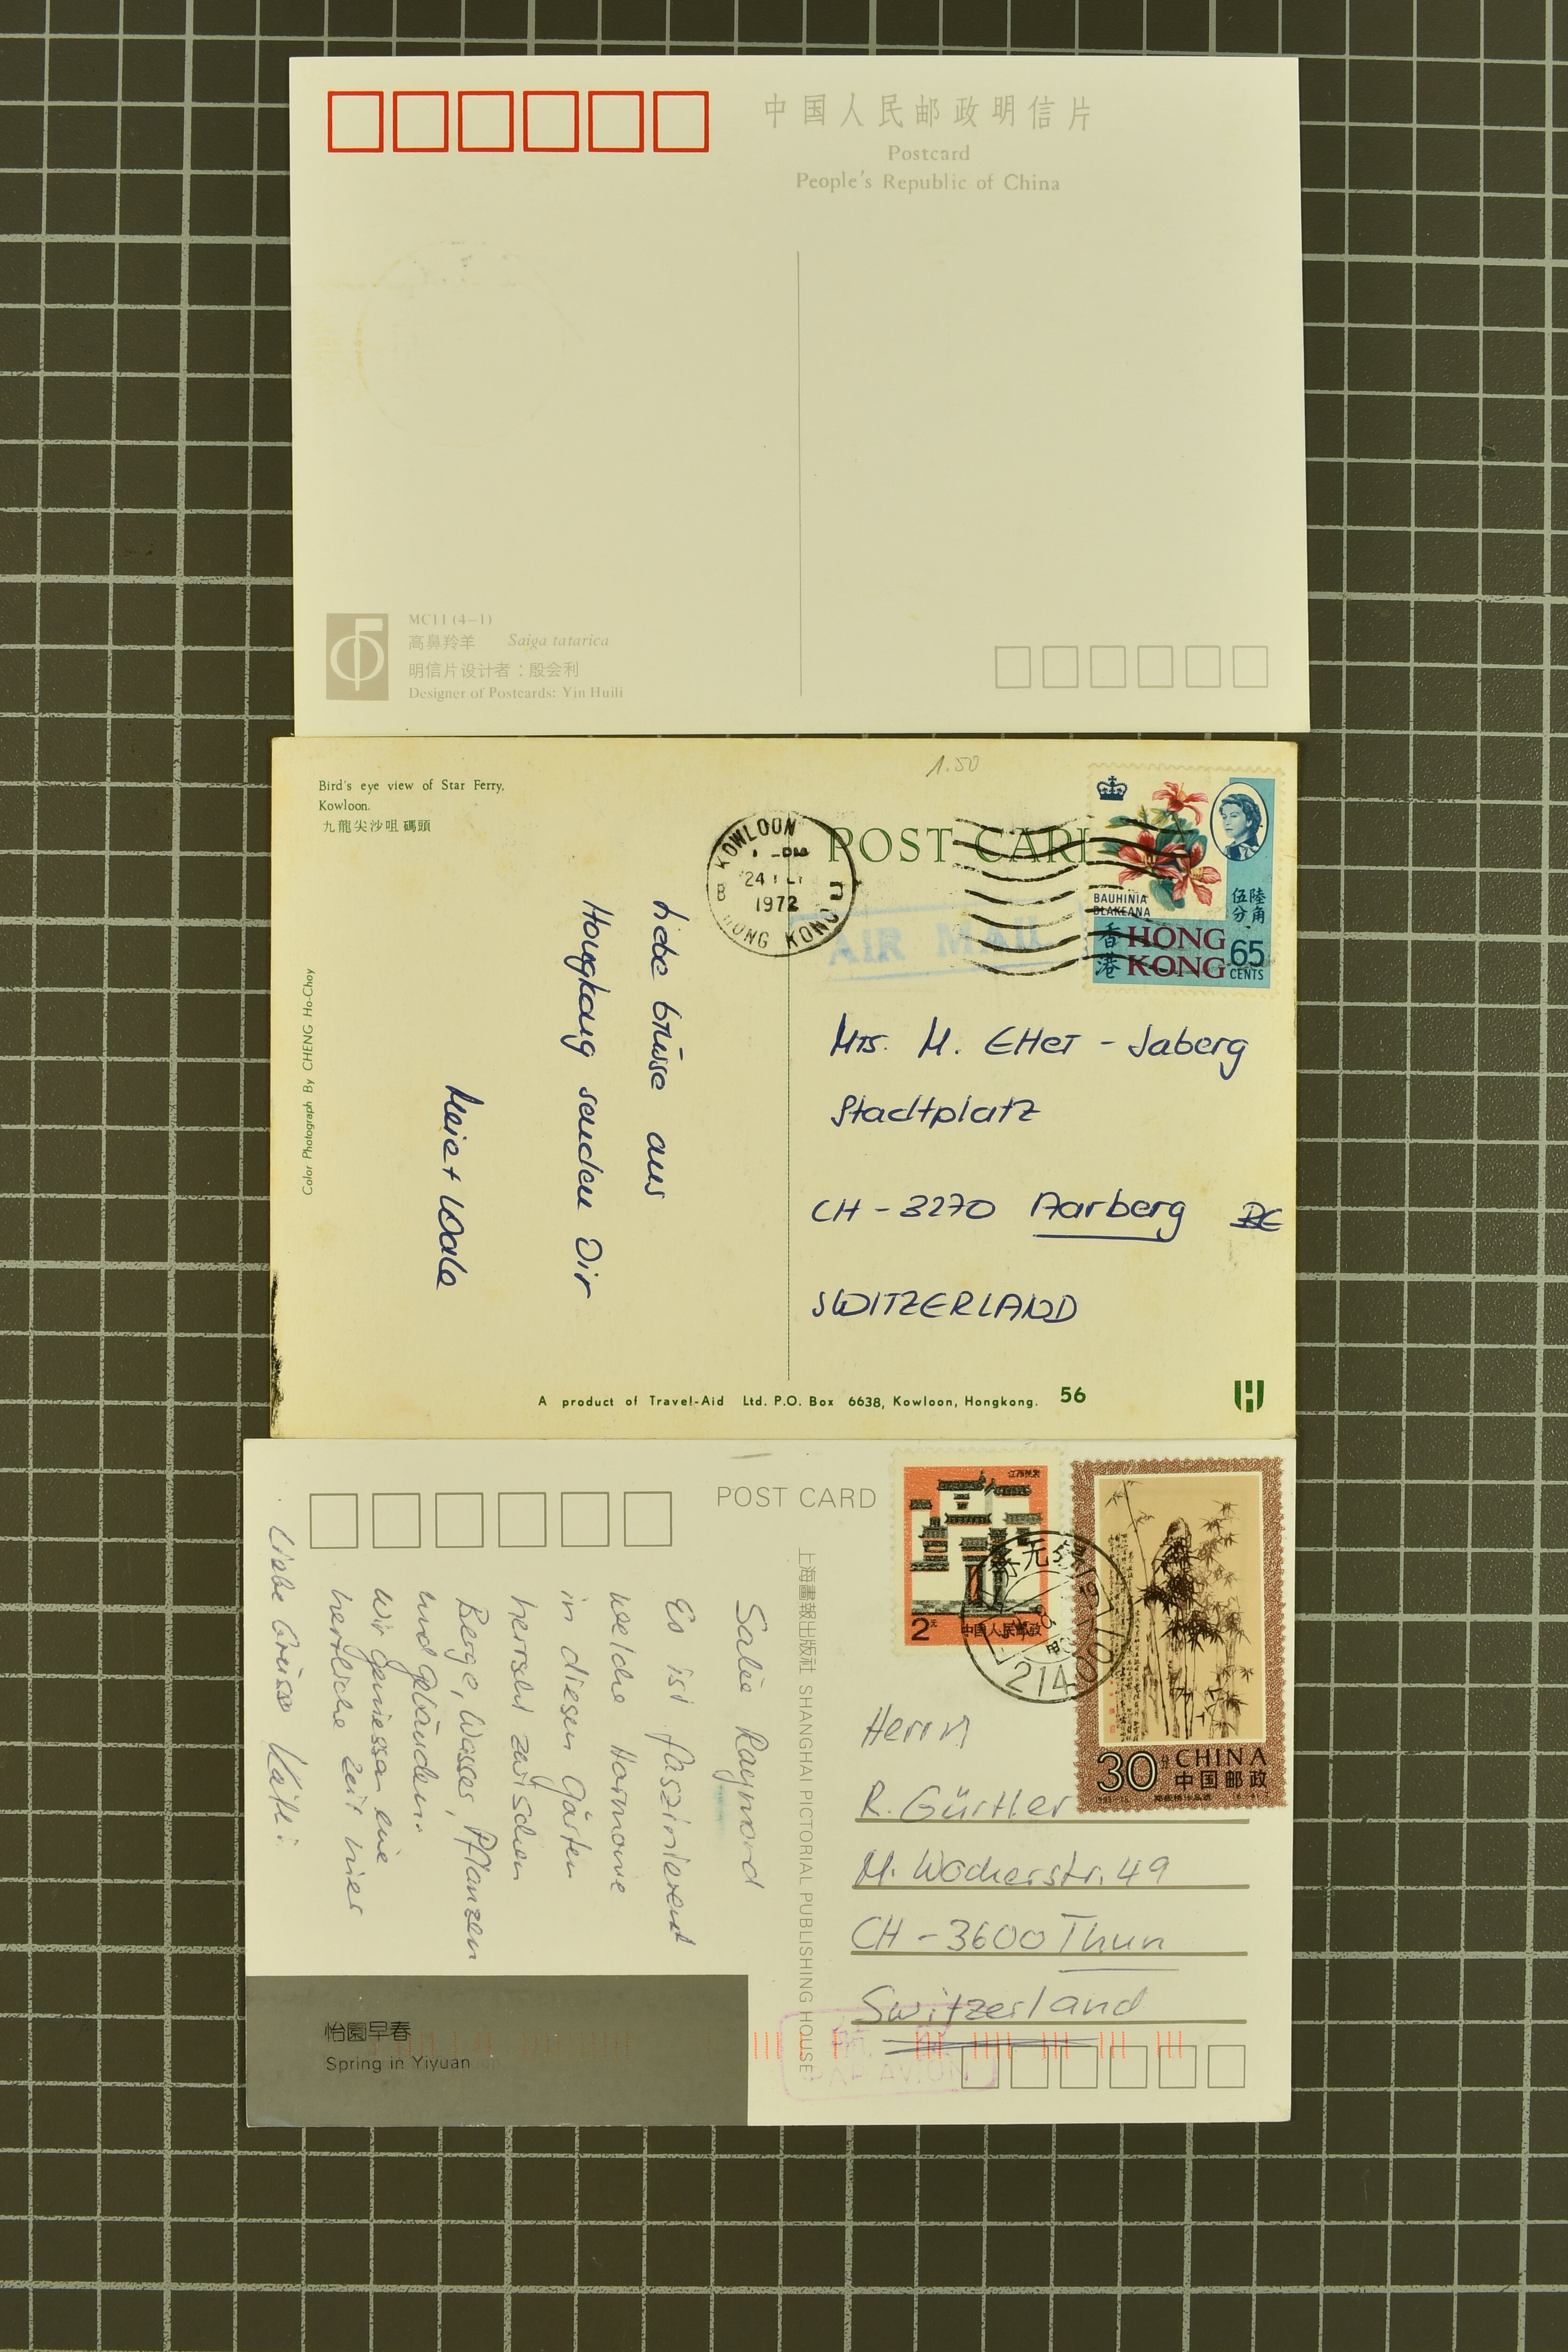 中国人民邮政明信片
Postcard
People's Republic of China
MC11 (4-1)
高鼻羚羊 Saiga tatarica
明信片设计者：殷会利
Designer of Postcards: Yin Huili
Bird's eye view of Star Ferry,
Kowloon.
九龍尖沙咀碼頭
Color Photograph By CHENG Ho-Choy
Liebe Grüsse aus
Hongkong senden Dir
1.50
KOWLOON
24
1972
B
HONG KONG
POST CAR
AIR MAIL
BAUHINIA
BLAKEANA
伍陸
分角
香港
HONG
KONG
65
CENTS
Mrs. M. Etter - Jaberg
Stadtplatz
CH - 3270 Aarberg
SWITZERLAND
A product of Travel-Aid Ltd. P.O. Box 6638, Kowloon, Hongkong. 56
POST CARD
上海畫報出版社 SHANGHAI PICTORIAL PUBLISHING HOUSE
Salü Raymond
Es ist faszinierend
welche Harmonie
in diesen Gärten
herrscht zwischen
Berge, Wasser, Pflanzen
und Gebäuden.
Wir geniessen eine
herrliche Zeit hier
Liebe Grüsse Käthi
怡園早春
Spring in Yiyuan
江西民居
2元
中国人民邮政
30分
CHINA
中国邮政
Herrn
R. Gürtler
M. Wocherstr. 49
CH - 3600 Thun
Switzerland
PAR AVION